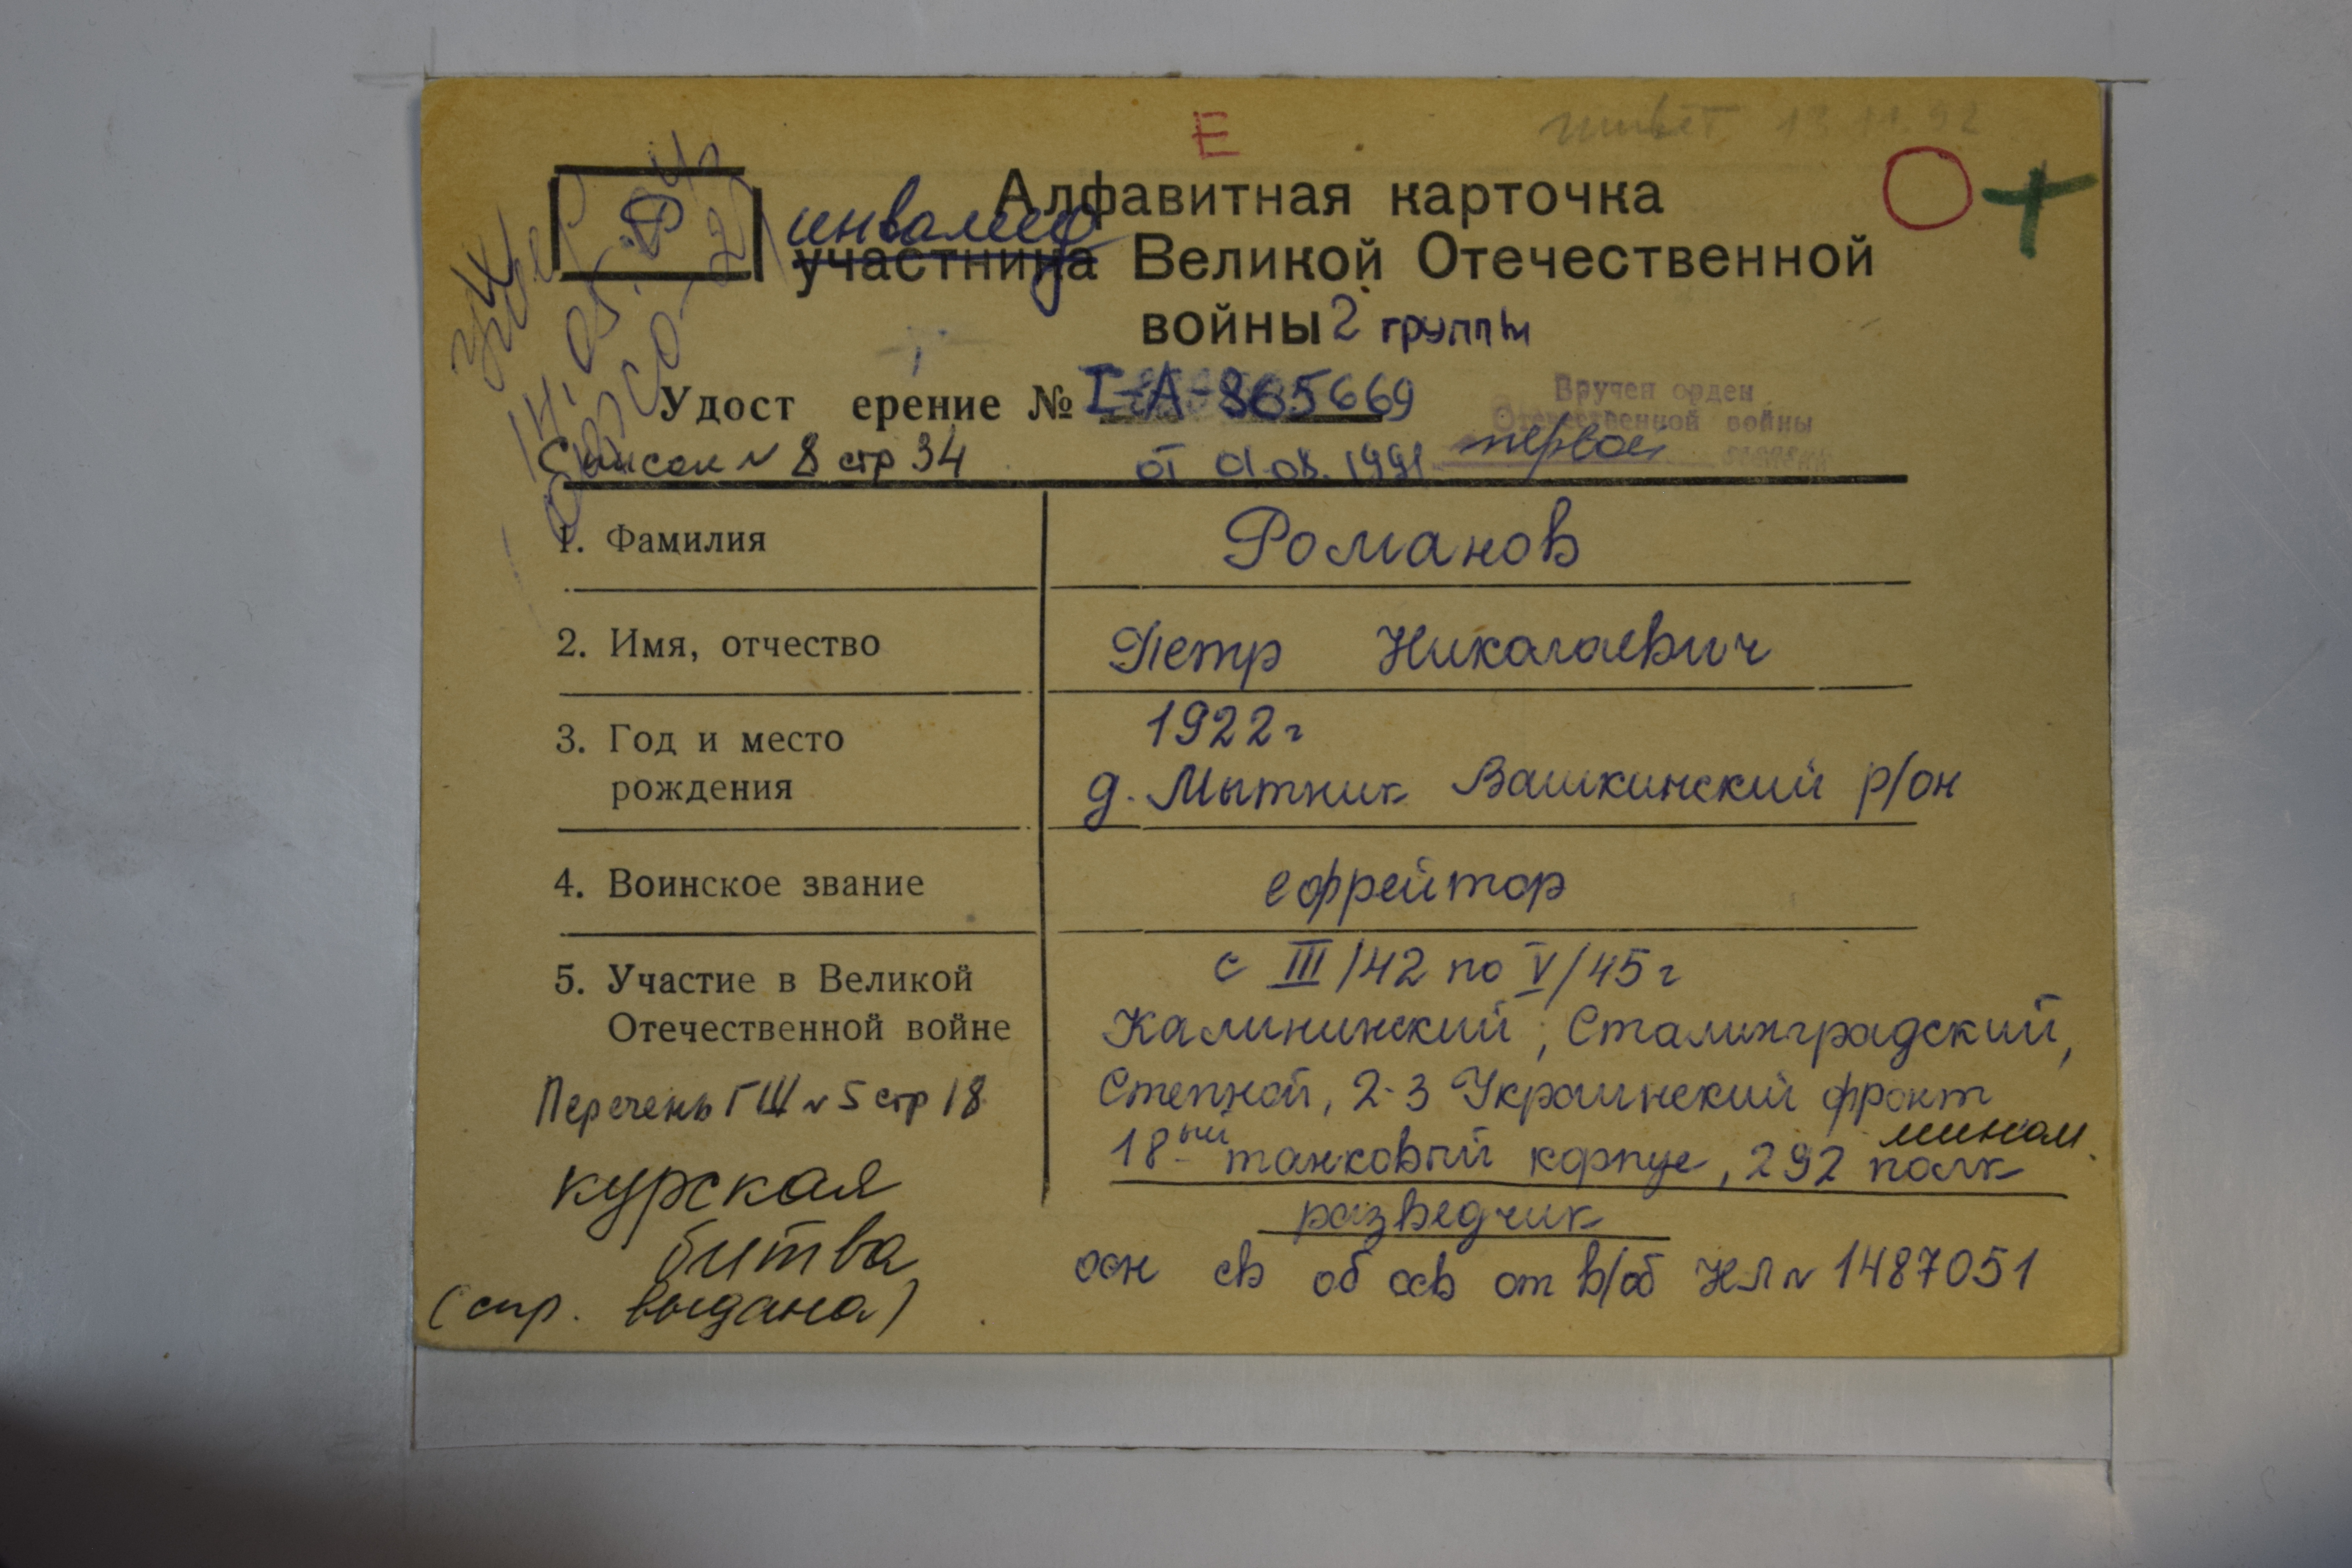 Е
живет 13 11 92
Р
Алфавитная карточка
инвалид
участница Великой Отечественной
войны 2 группы
Удост ерение № I-А-865669
Вручен орден
Отечественной войны
первой степени
Список № 8 стр 34
от 01.08.1991
1. Фамилия Романов
2. Имя, отчество Петр Николаевич
3. Год и место
рождения
1922г
д. Мытник Вашкинский р/он
4. Воинское звание ефрейтор
5. Участие в Великой
Отечественной войне
с III/42 по V/45г
Калининский, Сталинградский,
Степной, 2-3 Украинский фронт
18-ый танковый корпус, 292 мином. полк
разведчик
осн св об осв от в/об НЛ № 1487051
Перечень ГШ № 5 стр 18
курская
битва
(спр. выдана)